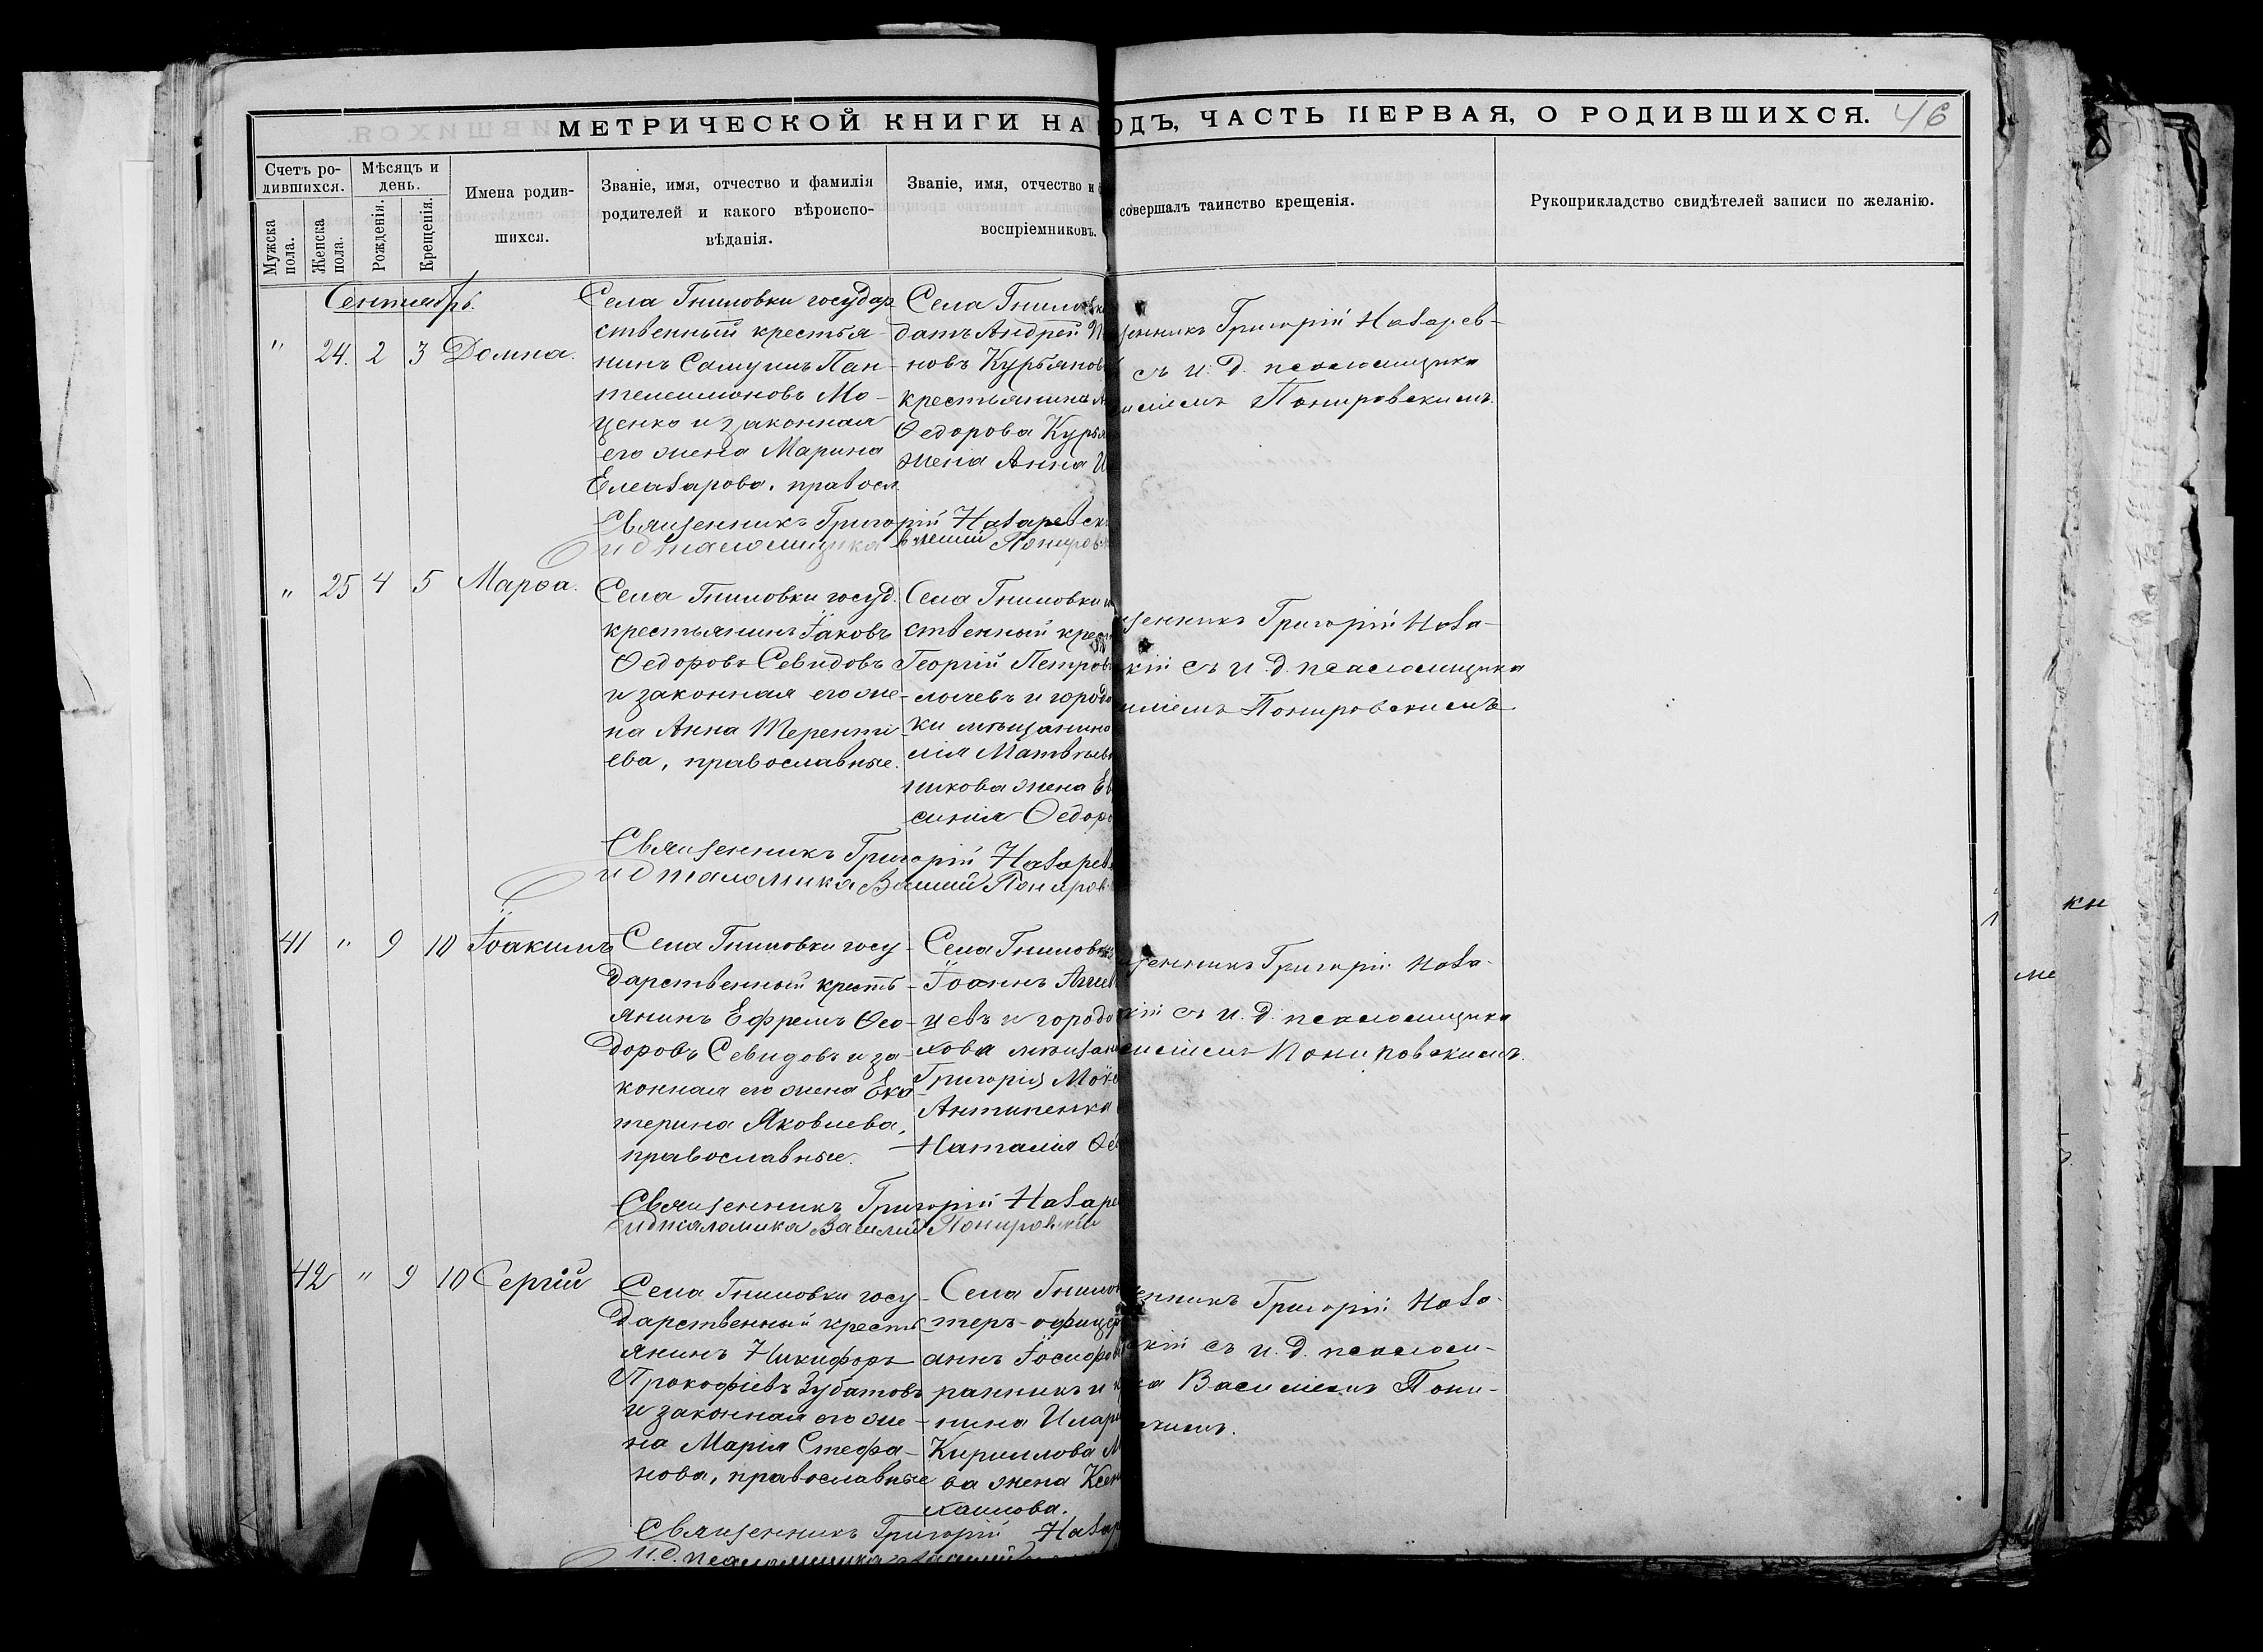 МЕТРИЧЕСКОЙ КНИГИ НА ОДЪ, ЧАСТЬ ПЕРВАЯ, О РОДИВШИХСЯ. 46
Счетъ ро-
дившихся.
Мужска
пола.
Женска
пола.
Мѣсяцъ и
день.
Рожденія.
Крещенія.
Имена родив-
шихся.
Званіе, имя, отчество и фамилія
родителей и какого вѣроиспо-
вѣданія.
Званіе, имя, отчество и
воспріемниковъ.
совершалъ таинство крещенія.
Рукоприкладство свидѣтелей записи по желанію.
Сентябрь.
" 24. 2 3 Домна.
Села Гниловки государ
ственный крестья-
нинъ Самуилъ Пан-
телеимоновъ Мо-
ценко и законная
его жена Марина
Елеазарова, правосл.
Села Гнилов
датъ Андрей
новъ Курьянов
крестьянина
Ѳедорова Курья
жена Анна
щенникъ Григорій Назарев-
съ и. д. псаломщика
иліемъ Понировскимъ.
Священникъ Григорій Назаревск
и д псаломщика Василий Пониров
" 25 4 5 Марѳа.
Села Гниловки госуд.
крестьянинъ Іаковъ
Ѳедоровъ Севидовъ
и законная его же-
на Анна Теренті
ева, православные.
Села Гниловки
ственный крес
Георгій Петров
лычевъ и городо
ки мѣщанина
лія Матвѣев
никова жена Ев
синія Ѳедоро
щенникъ Григорій Наза-
кій съ и. д. псаломщика
иліемъ Понировскимъ
Священникъ Григорій Назарев
и д псаломщика Василий Пониров
41 " 9 10 Іоакимъ
Села Гниловки госу-
дарственный кресть-
янинъ Ефремъ Ѳео-
доровъ Севидовъ и за-
конная его жена Ека
терина Яковлева,
православные.
Села Гниловк
Іоаннъ
цевъ и городо
хова мѣщани
Григорія
Антипенка
Наталія Ѳе
щенникъ Григорій Наза-
кій съ и. д. псаломщика
силіемъ Понировскимъ.
Священникъ Григорій Назаре
и д псаломщика Василий Понировскій
42 " 9 10 Сергій
Села Гниловки госу-
дарственный кресть
янинъ Никифоръ
Прокофіевъ Зубатовъ
и законная его же-
на Марія Стефа-
нова, православные
Села Гнилов
теръ-офицер
аннъ Іосифов
ранникъ и к
нина Илар
Кириллова М
ва жена Ксен
хаилова.
енникъ Григорій Наза-
скій съ и. д. псаломщи-
ка Василіемъ Пони-
скимъ.
Священникъ Григорій Назар
и.д. псаломщика Василий